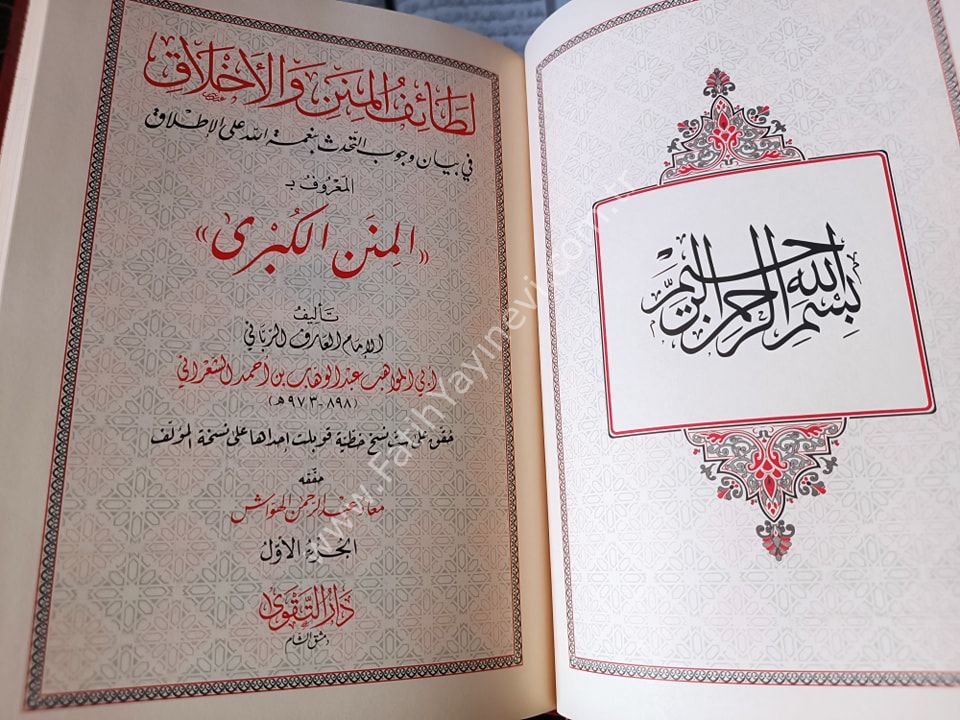 لطائف المنن والأخلاق
في بيان وجوب التحدث بنعمة الله على الإطلاق
المعروف بـ
«المنن الكبرى»
تأليف
الإمام العارف الرباني
أبي المواهب عبد الوهاب بن أحمد الشعراني
(٨٩٨-٩٧٣هـ)
حقق على ست نسخ خطية قوبلت إحداها على نسخة المؤلف
حققه
معاذ عبد الرحمن الهواش
الجزء الأول
دار التقوى
دمشق الشام
بسم الله الرحمن الرحيم
www.FatihYayinevi.com.tr